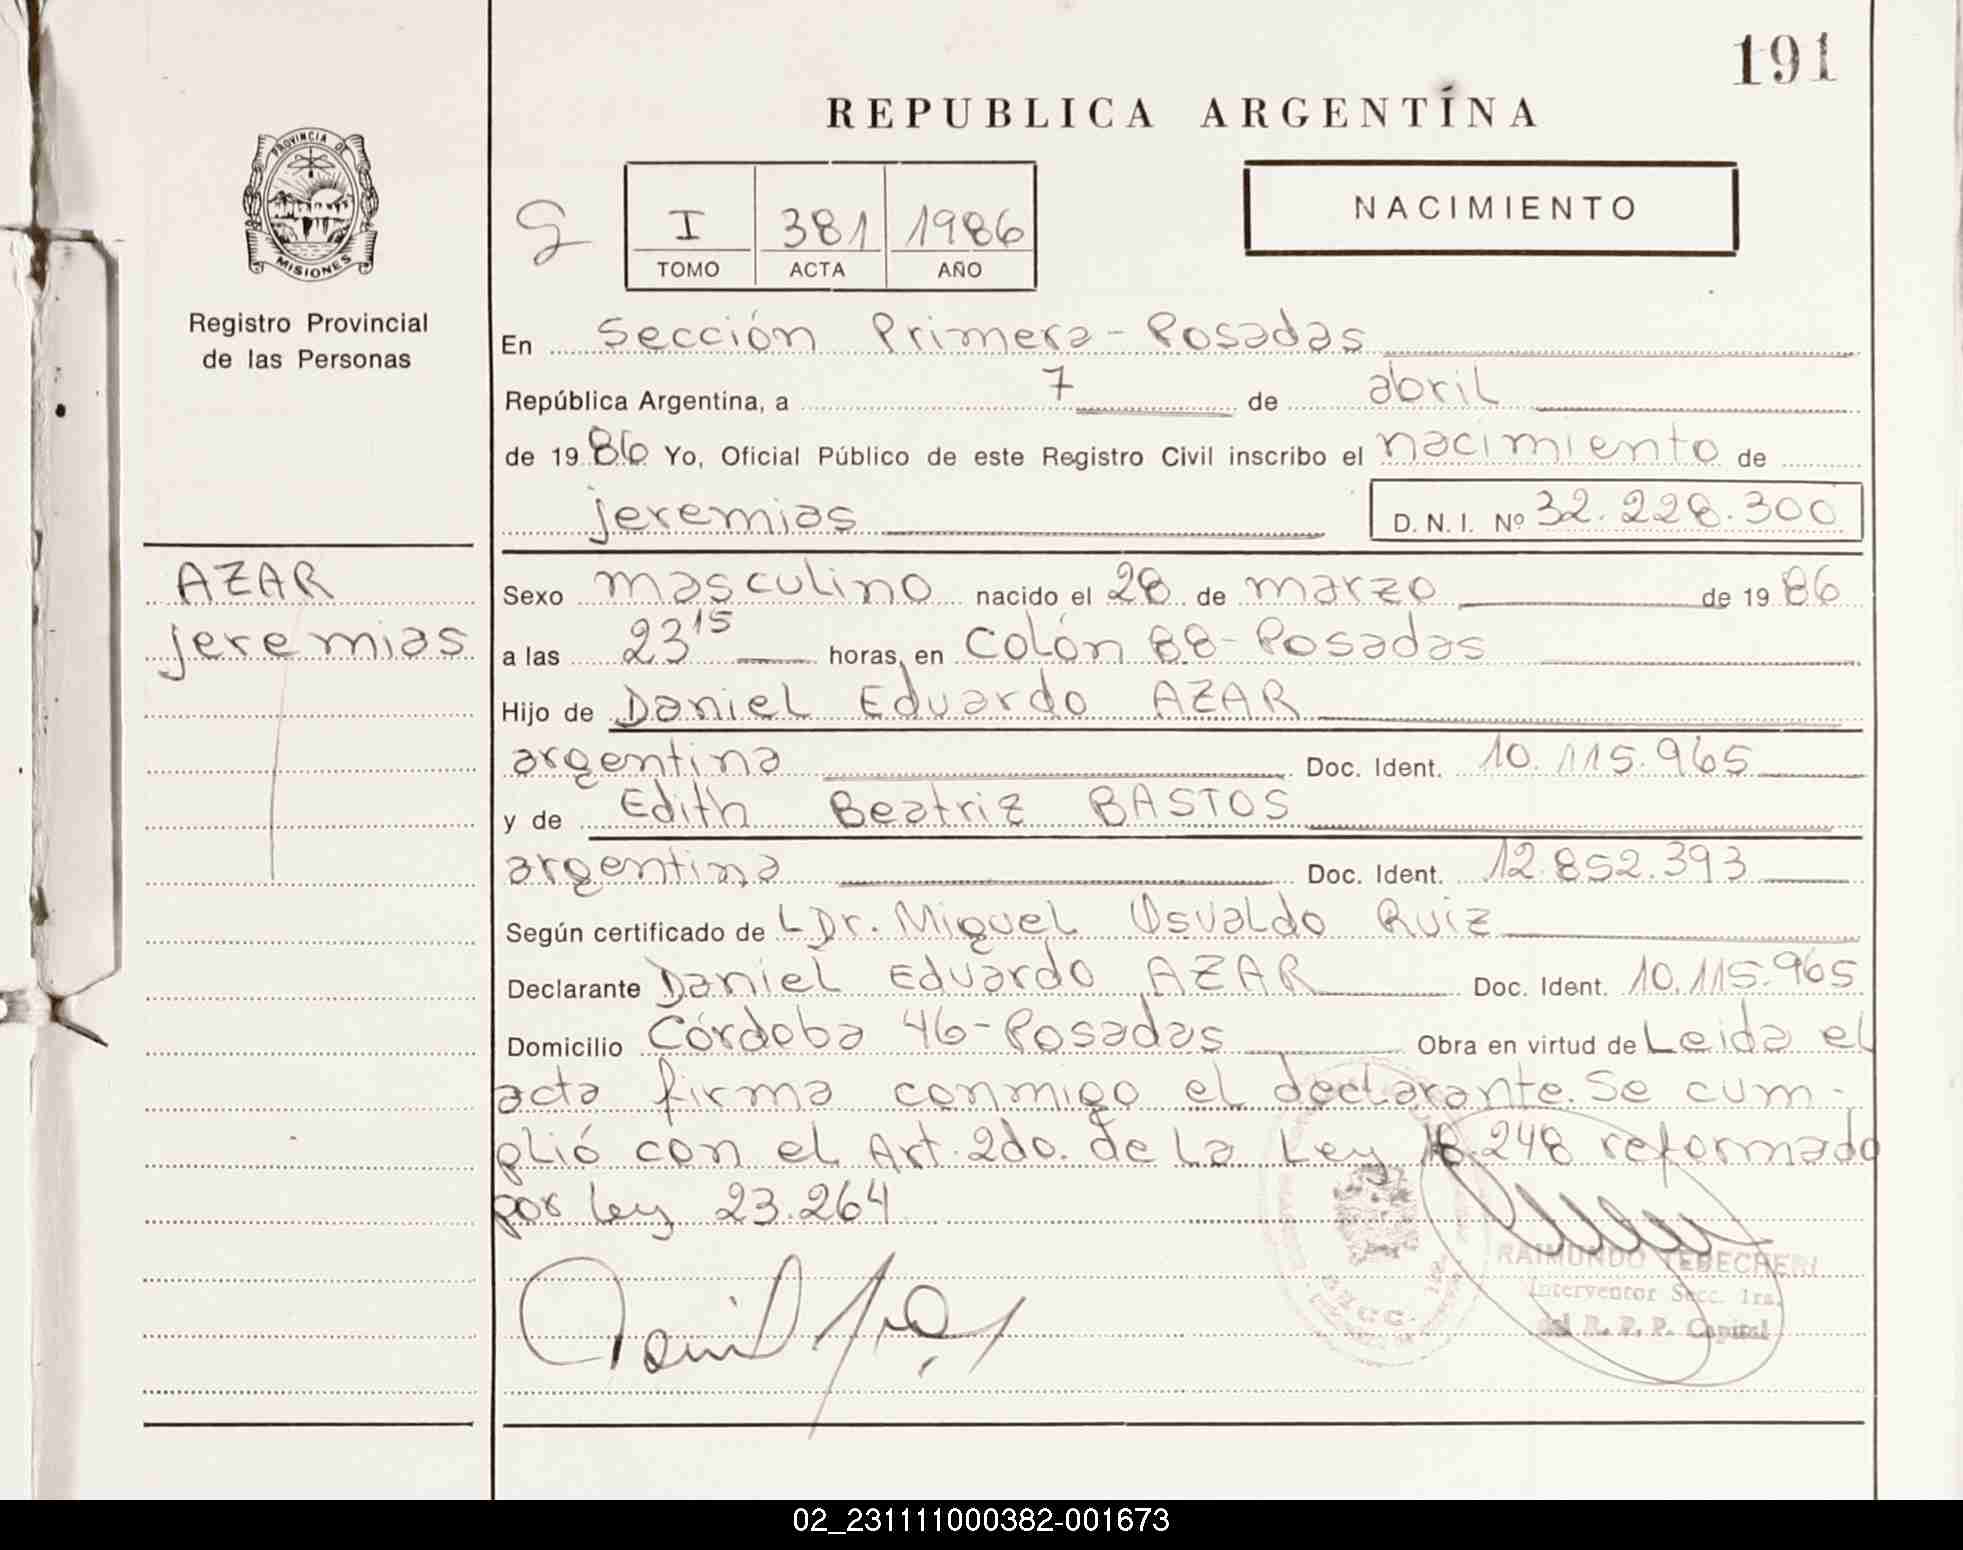 191
REPUBLICA ARGENTINA
PROVINCIA DE
MISIONES
Registro Provincial
de las Personas
I 381 1986
TOMO ACTA AÑO
NACIMIENTO
En Sección Primera - Posadas
República Argentina, a 7 de abril
de 1986 Yo, Oficial Público de este Registro Civil inscribo el nacimiento de
jeremias D. N. I. Nº 32.228.300
AZAR
jeremias
Sexo masculino nacido el 28 de marzo de 1986
a las 23 15 horas, en Colón 88 - Posadas
Hijo de Daniel Eduardo AZAR
argentina Doc. Ident. 10.115.965
y de Edith Beatriz BASTOS
argentina Doc. Ident. 12.852.393
Según certificado de LDr. Miguel Osvaldo Ruiz
Declarante Daniel Eduardo AZAR Doc. Ident. 10.115.965
Domicilio Córdoba 46 - Posadas Obra en virtud de Leida el
acta firma conmigo el declarante. Se cum-
plió con el Art. 2do. de la Ley 18.248 reformado
por ley 23.264
RAIMUNDO
Interventor Secc. 1ra.
del R. P. P. Capital
02_231111000382-001673